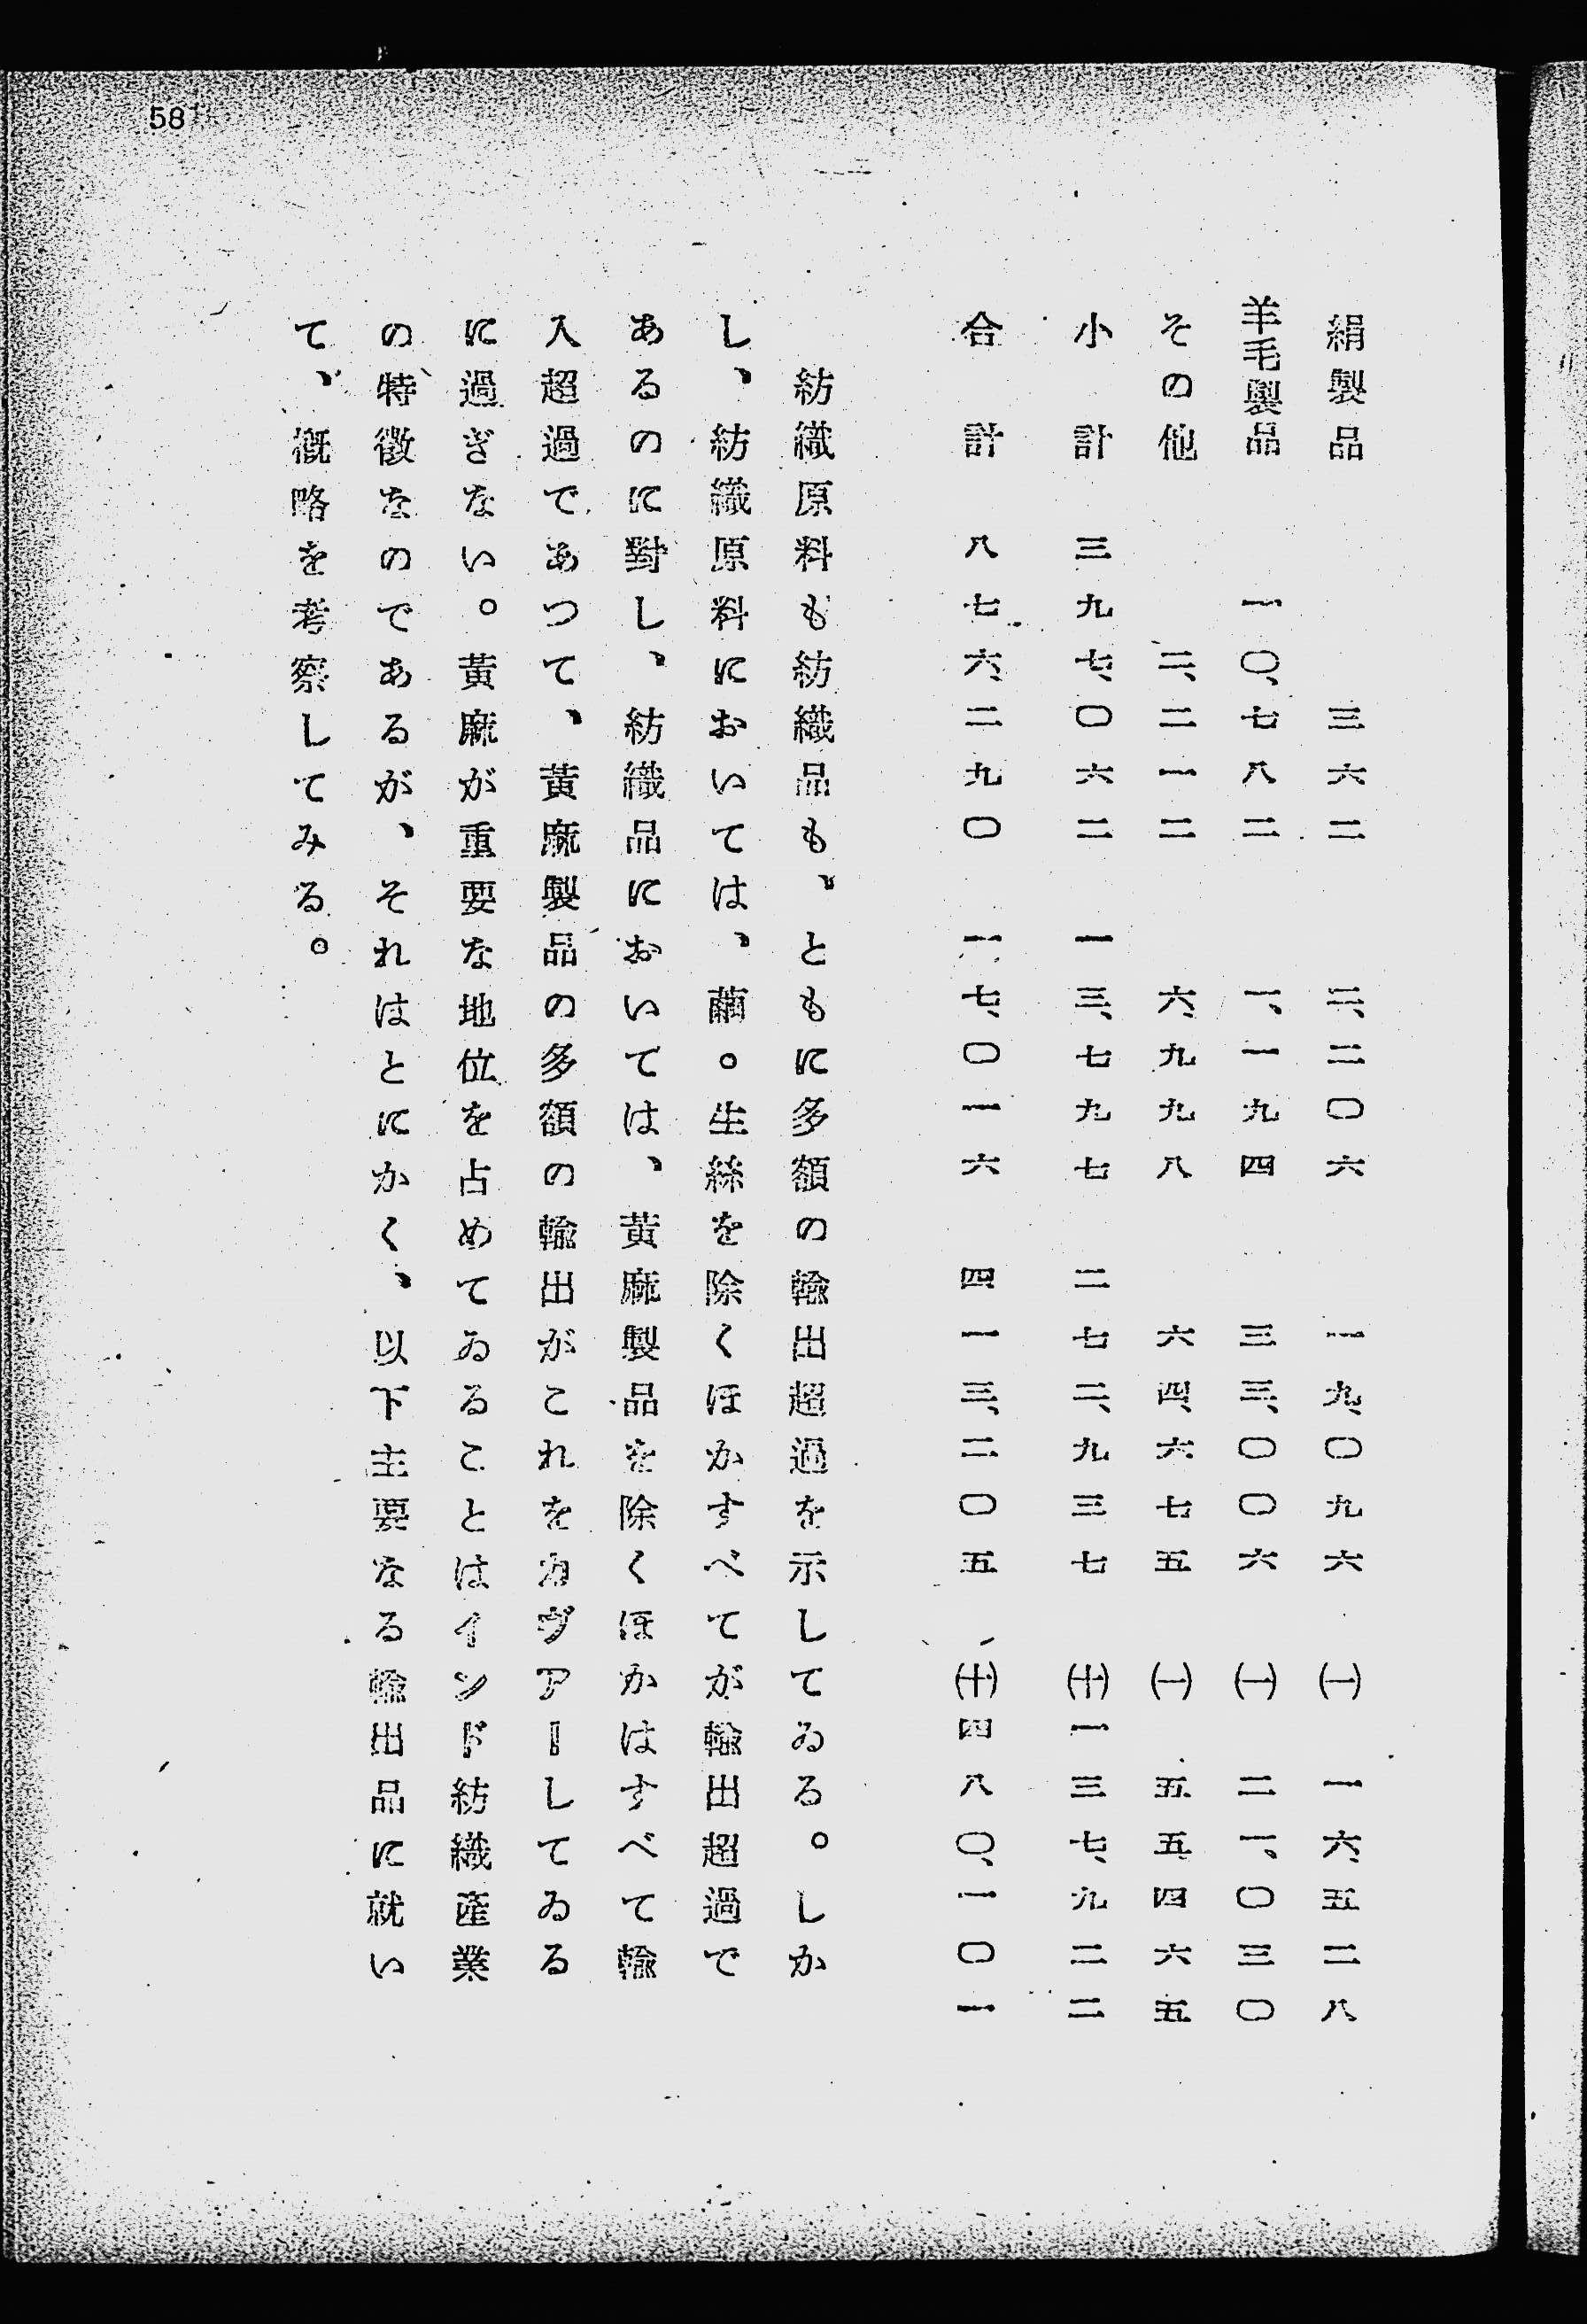 58
絹製品 三六二 二、二〇六 一九、〇九六 (一) 一六、五二八
羊毛製品 一〇、七八二 一、一九四 三三、〇〇六 (一) 二一、〇三〇
その他 二、二一二 六、九九八 六四、六七五 (一) 五五四六五
小計 三九七、〇六二 一三、七九七 二七二、九三七 (十) 一三七、九二二
合計 八七六、二九〇 一七、〇一六 四一三、二〇五 (十) 四八〇、一〇一
紡織原料も紡織品も、ともに多額の輸出超過を示してゐる。しか
し、紡織原料においては、繭。生絲を除くほかすべてが輸出超過で
あるのに對し、紡織品においては、黃麻製品を除くほかはすべて輸
入超過であつて、黃麻製品の多額の輸出がこれをカヴアーしてゐる
に過ぎない。黃麻が重要な地位を占めてゐることはインド紡織產業
の特徵なのであるが、それはとにかく、以下主要なる輸出品に就い
て、槪略を考察してみる。